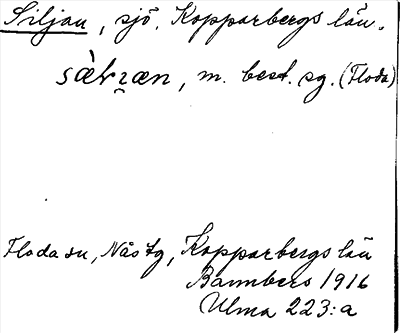 Siljan, sjö. Kopparbergs län.
m. best. sg. (Floda)
Floda sn, Nås tg, Kopparbergs län
Bannbers 1916
Ulma 223:a